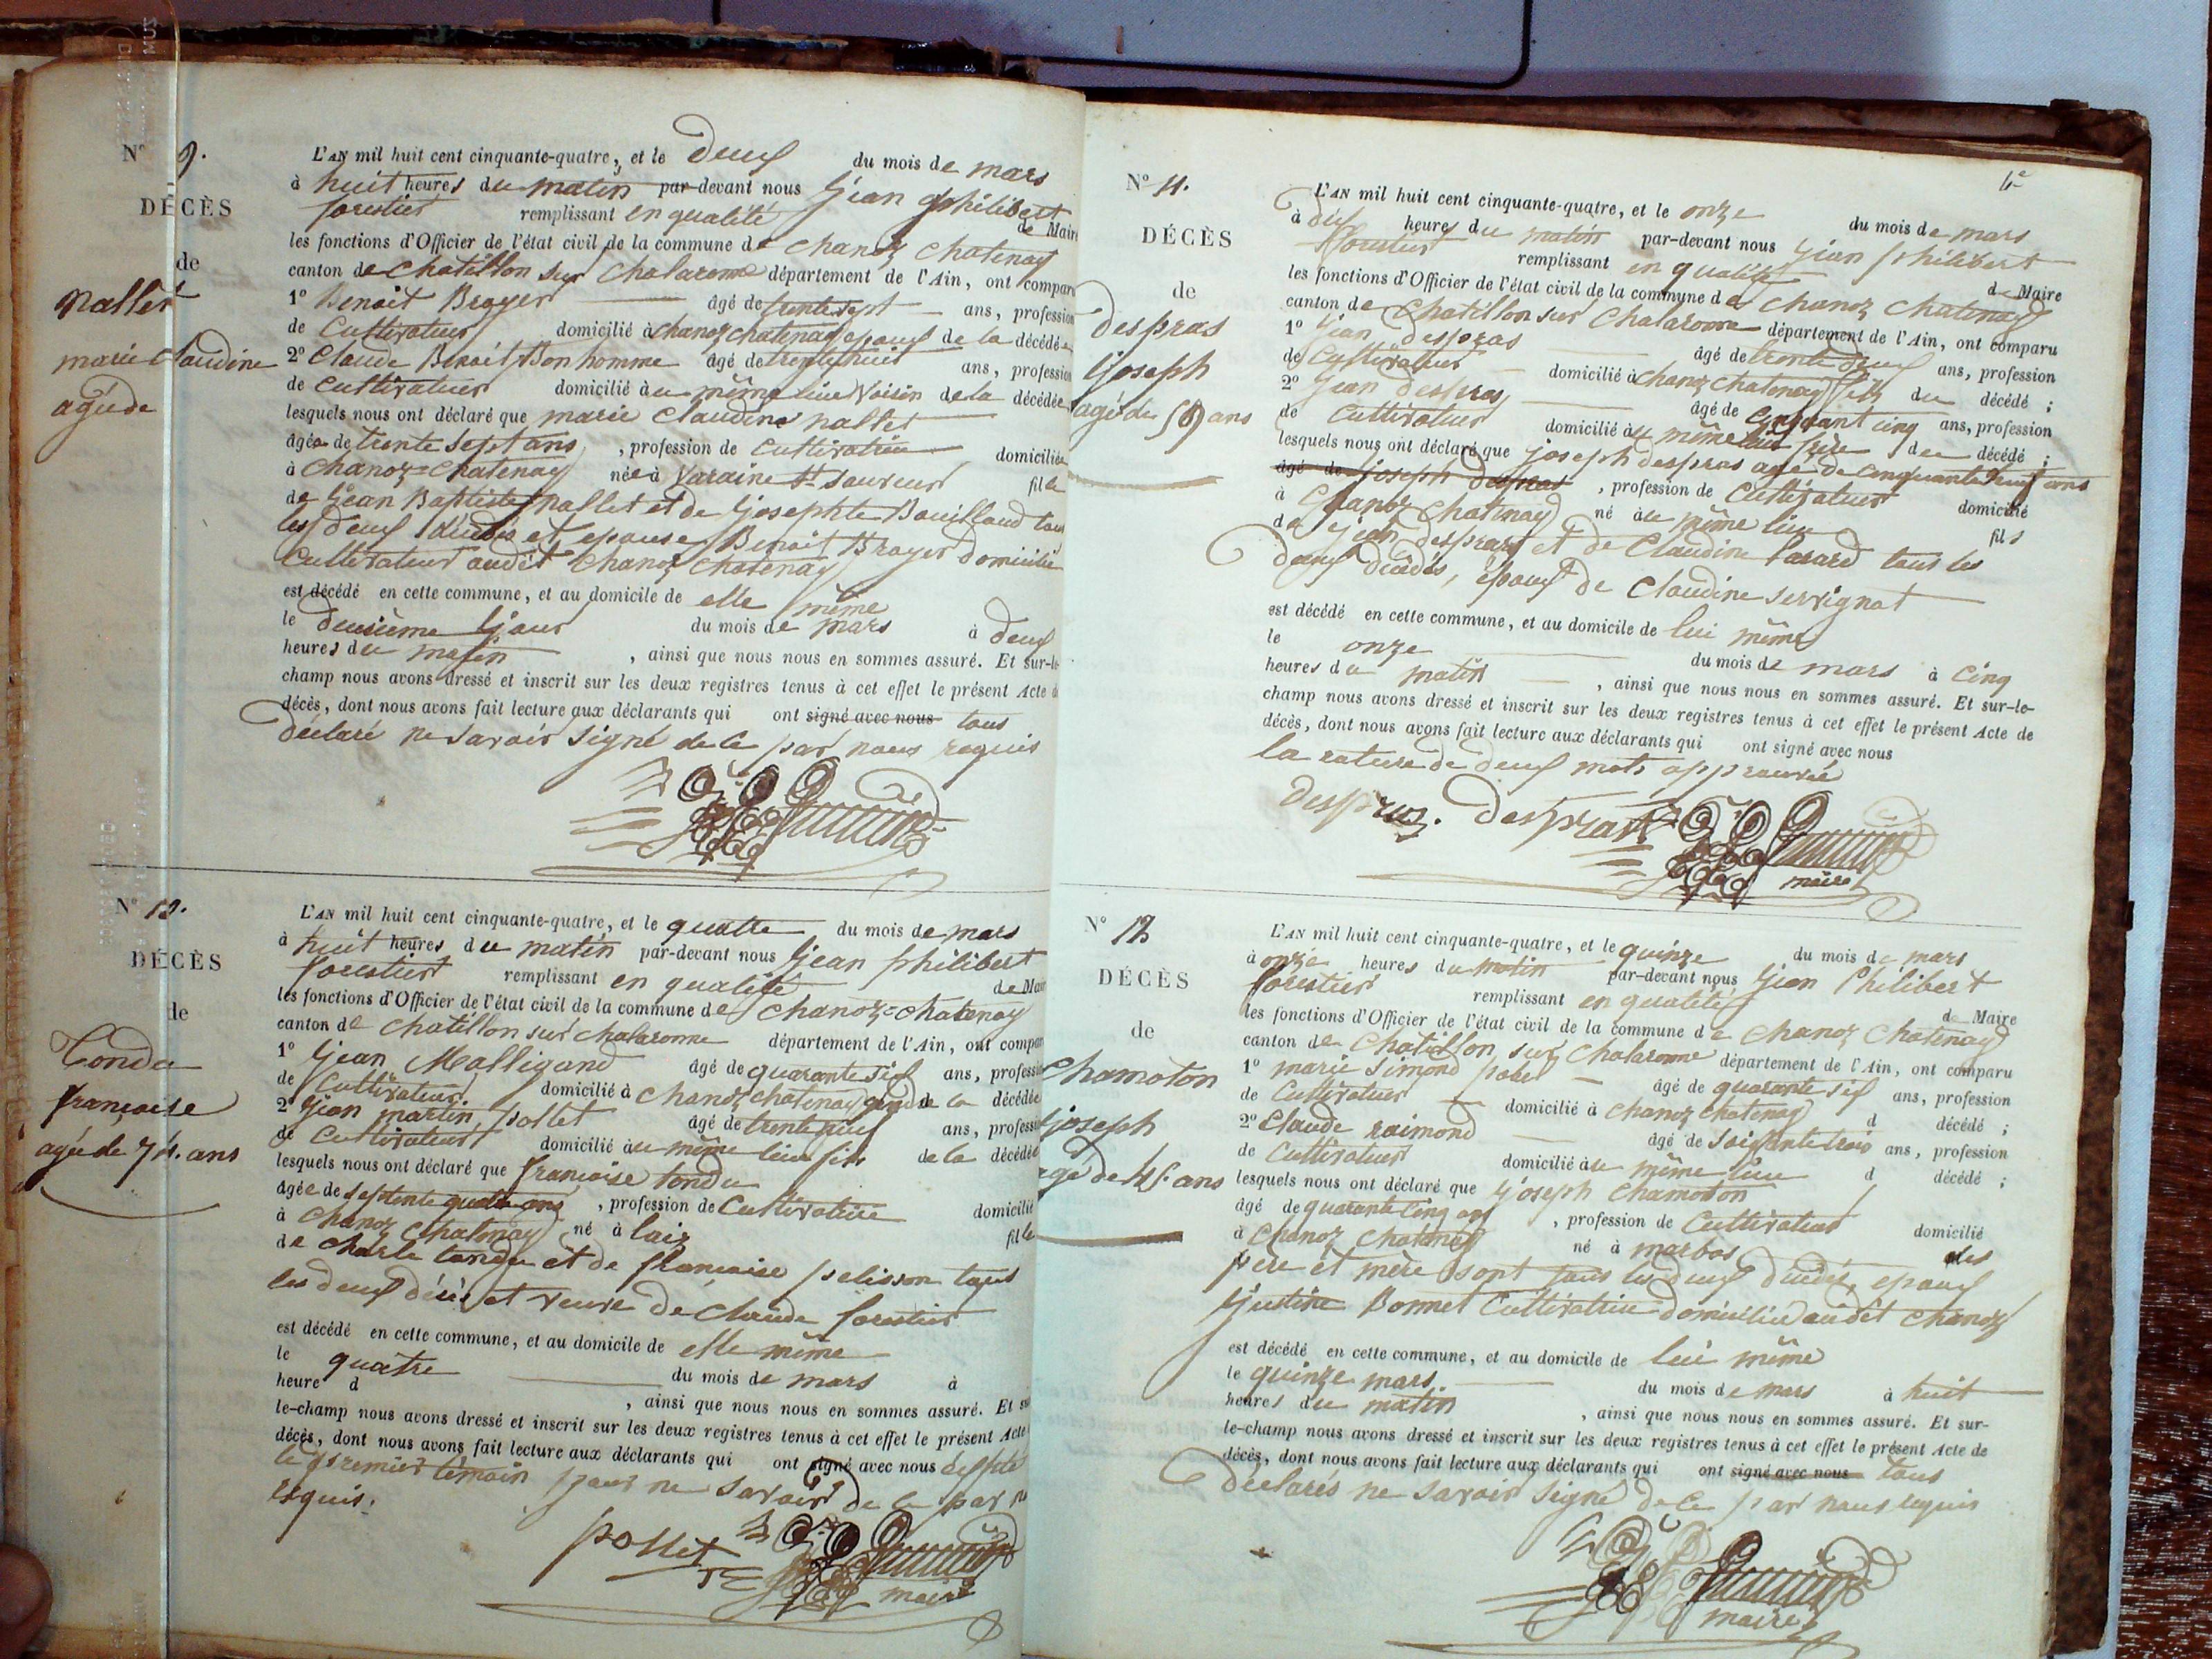 N° 9.
DÉCÈS
de
Nallet
marie Claudine
agée de
L'AN mil huit cent cinquante-quatre, et le Deux du mois de mars
à huit heures du matin par-devant nous Jean Philibert
forestier remplissant en qualité de Maire
les fonctions d'Officier de l'état civil de la commune de Chanoz Chatenay
canton de Chatillon sur Chalaronne département de l'Ain, ont comparu
1° Benoit Broyer âgé de trente sept ans, profession
de Cultivateur domicilié à chanoz chatenay epoux de la décédée
2° Claude Benoit Bonhomme âgé de trente huit ans, profession
de cultivateur domicilié au même lieu Voisin de la décédée
lesquels nous ont déclaré que marie Claudine nallet
âgée de trente sept ans, profession de Cultivatrice domiciliée
à Chanoz=Chatenay née à Varaine St Sauveur fille
de Jean Baptiste nallet et de Josephte Bouilloud tous
les deux décédés et epouse Benoit Broyer domicilié
Cultivateur audit Chanoz Chatenay
est décédé en cette commune, et au domicile de elle même
le deusième Jour du mois de mars à deux
heures du matin, ainsi que nous nous en sommes assuré. Et sur-le-
champ nous avons dressé et inscrit sur les deux registres tenus à cet effet le présent Acte de
décès, dont nous avons fait lecture aux déclarants qui ont signé avec nous tous
déclaré ne savoir signé de ce par nous requis
N° 10.
DÉCÈS
de
Tondu
françoise
agée de 74. ans
L'AN mil huit cent cinquante-quatre, et le quatre du mois de mars
à huit heures du matin par-devant nous Jean philibert
forestier remplissant en qualité de Maire
les fonctions d'Officier de l'état civil de la commune de Chanoz=Chatenay
canton de Chatillon sur Chalaronne département de l'Ain, ont comparu
1° Jean Malligand âgé de quarante six ans, profession
de Cultivateur domicilié à Chanoz chatenay gendre de la décédée
2° Jean martin pollet âgé de trente neuf ans, profession
de Cultivateur domicilié au même lieu de la décédée
lesquels nous ont déclaré que françoise tondu
âgée de septente quatre ans, profession de Cultivatrice domicilié
à Chanoz Chatenay né à laiz fille
de Charle tondu et de françoise pelisson tous
les deux décé et veuve de Claude forestier
est décédé en cette commune, et au domicile de elle même
le quatre du mois de mars à
heure d , ainsi que nous nous en sommes assuré. Et sur-
le-champ nous avons dressé et inscrit sur les deux registres tenus à cet effet le présent Acte
décès, dont nous avons fait lecture aux déclarants qui ont signé avec nous
le premier témoin pour ne savoir de ce par
requis.
pollet
maire
N° 11.
DÉCÈS
de
Despras
Joseph
agé de 59 ans
L'AN mil huit cent cinquante-quatre, et le onze du mois de mars
à dix heures du matin par-devant nous Jean philibert
forestier remplissant en qualité de Maire
les fonctions d'Officier de l'état civil de la commune de Chanoz Chatenay
canton de Chatillon sur Chalaronne département de l'Ain, ont comparu
1° Jean Despras âgé de trente deux ans, profession
de Cultivateur domicilié à Chanoz Chatenay fils du décédé ;
2° Jean Despras âgé de cinquant cinq ans, profession
de Cultivateur domicilié au même lieu frère du décédé ;
lesquels nous ont déclaré que joseph despras agé de cinquante neuf ans
âgé de joseph Despras, profession de Cultivateur domicilié
à Chanoz Chatenay né au même lieu fils
de Jean despras et de Claudine Parard tous les
Deux décédés, époux de Claudine servignat
est décédé en cette commune, et au domicile de lui même
le onze du mois de mars à cinq
heures du matin, ainsi que nous nous en sommes assuré. Et sur-le-
champ nous avons dressé et inscrit sur les deux registres tenus à cet effet le présent Acte de
décès, dont nous avons fait lecture aux déclarants qui ont signé avec nous
la rature de deux mots approuvée
Despras. Despras
maire
N° 12
DÉCÈS
de
Chamoton
joseph
agé de 45. ans
L'AN mil huit cent cinquante-quatre, et le quinze du mois de mars
à onze heures du matin par-devant nous Jean Philibert
forestier remplissant en qualité de Maire
les fonctions d'Officier de l'état civil de la commune de Chanoz Chatenay
canton de Chatillon sur Chalaronne département de l'Ain, ont comparu
1° marie simond âgé de quarante six ans, profession
de Cultivateur domicilié à Chanoz Chatenay d décédé ;
2° Claude raimond âgé de soixante trois ans, profession
de Cultivateur domicilié au même lieu d décédé ;
lesquels nous ont déclaré que Joseph Chamoton
âgé de quarante cinq ans, profession de Cultivateur domicilié
à Chanoz Chatenay né à marboz des
père et mère sont tous les deux décédés epoux
justine Bonnet Cultivatrice domiciliée audit Chanoz
est décédé en cette commune, et au domicile de lui même
le quinze mars du mois de mars à huit
heures du matin, ainsi que nous nous en sommes assuré. Et sur-
le-champ nous avons dressé et inscrit sur les deux registres tenus à cet effet le présent Acte de
décès, dont nous avons fait lecture aux déclarants qui ont signé avec nous tous
Déclarés ne savoir signé de ce par nous requis
maire